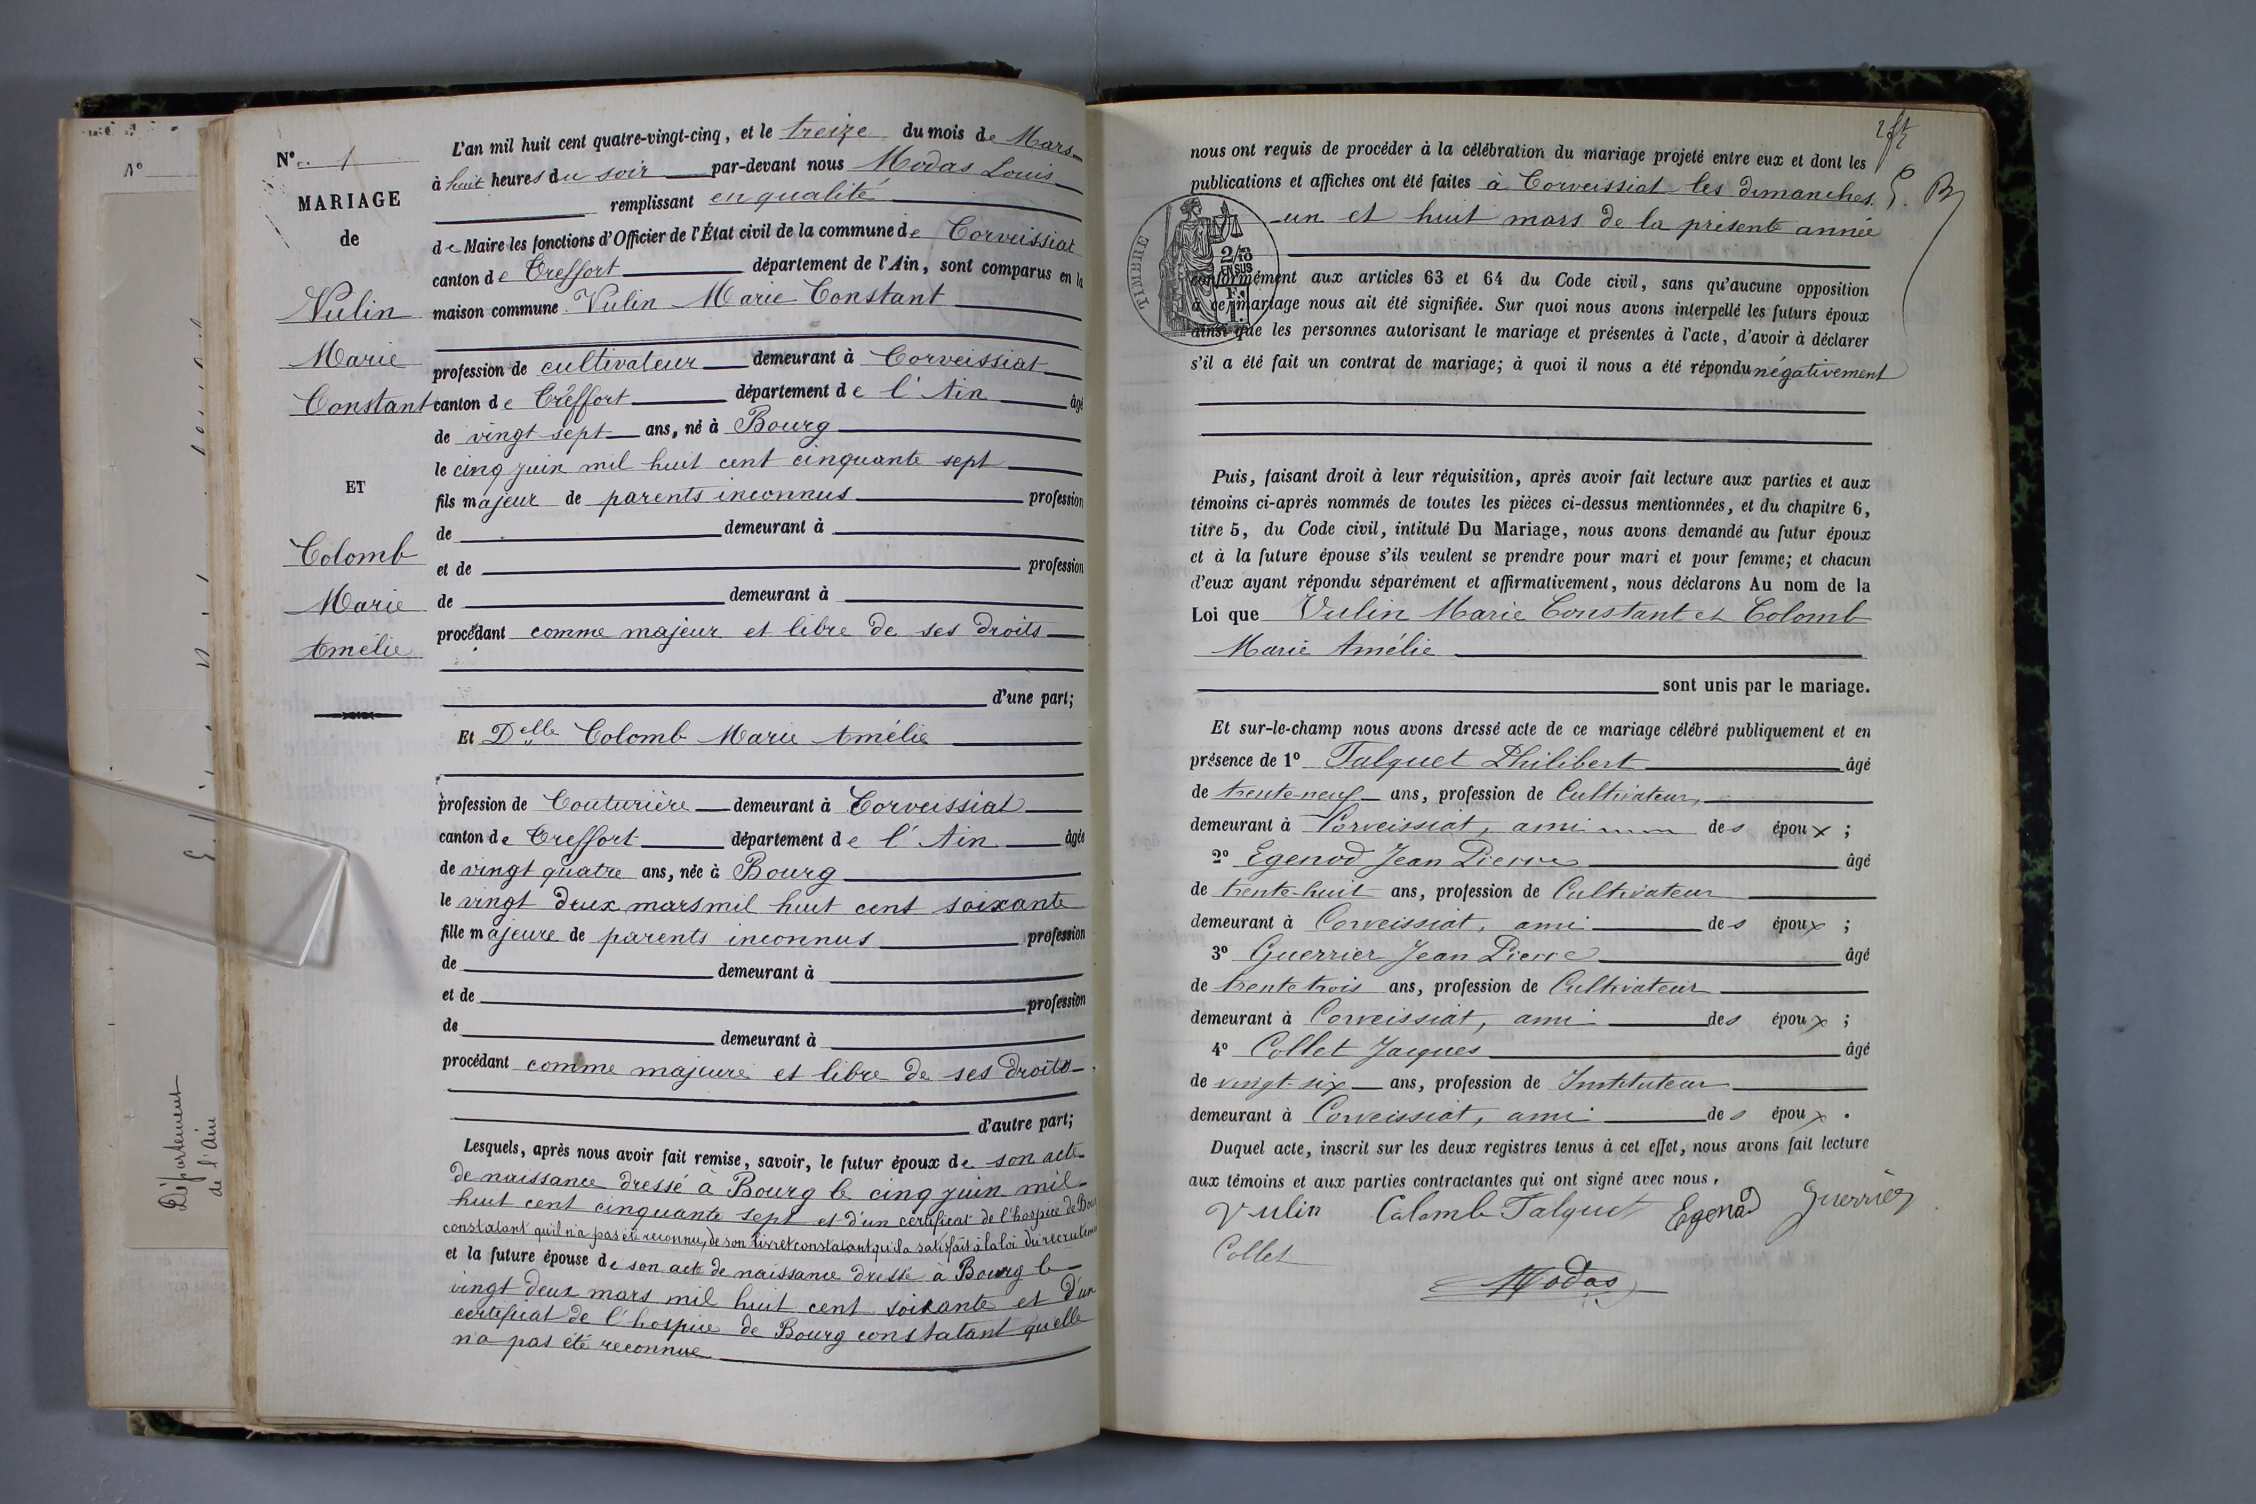 N° 1
MARIAGE
de
Vulin
Marie
Constant
ET
Colomb
Marie
Amélie
L'an mil huit cent quatre-vingt-cinq, et le treize du mois de Mars
à huit heures du soir par-devant nous Modas Louis
remplissant en qualité
de Maire les fonctions d'Officier de l'État civil de la commune de Corveissiat
canton de Treffort département de l'Ain, sont comparus en la
maison commune Vulin Marie Constant
profession de cultivateur demeurant à Corveissiat
canton de Tréffort département de l'Ain âgé
de vingt sept ans, né à Bourg
le cinq juin mil huit cent cinquante sept
fils majeur de parents inconnus profession
de demeurant à
et de profession
de demeurant à
procédant comme majeur et libre de ses droits
d'une part;
Et Delle Colomb Marie Amélie
profession de Couturière demeurant à Corveissiat
canton de Treffort département de l'Ain âgée
de vingt quatre ans, née à Bourg
le vingt deux mars mil huit cent soixante
fille majeure de parents inconnus profession
de demeurant à
et de profession
de demeurant à
procédant comme majeure et libre de ses droits
d'autre part;
Lesquels, après nous avoir fait remise, savoir, le futur époux de son acte
de naissance dressé à Bourg le cinq juin mil
huit cent cinquante sept et d'un certificat de l'hospice de Bourg
constatant qu'il n'a pas été reconnu, de son livret constatant qu'il a satisfait à la loi du recrutement
et la future épouse de son acte de naissance dressé à Bourg le
vingt deux mars mil huit cent soixante et d'un
certificat de l'hospice de Bourg constatant qu'elle
n'a pas été reconnue
Département
de l'Ain
nous ont requis de procéder à la célébration du mariage projeté entre eux et dont les
publications et affiches ont été faites à Corveissiat les dimanches
un et huit mars de la présente année
TIMBRE
2/10
EN SUS
conformément aux articles 63 et 64 du Code civil, sans qu'aucune opposition
à ce mariage nous ait été signifiée. Sur quoi nous avons interpellé les futurs époux
ainsi que les personnes autorisant le mariage et présentes à l'acte, d'avoir à déclarer
s'il a été fait un contrat de mariage; à quoi il nous a été répondu négativement
Puis, faisant droit à leur réquisition, après avoir fait lecture aux parties et aux
témoins ci-après nommés de toutes les pièces ci-dessus mentionnées, et du chapitre 6,
titre 5, du Code civil, intitulé Du Mariage, nous avons demandé au futur époux
et à la future épouse s'ils veulent se prendre pour mari et pour femme; et chacun
d'eux ayant répondu séparément et affirmativement, nous déclarons Au nom de la
Loi que Vulin Marie Constant et Colomb
Marie Amélie
sont unis par le mariage.
Et sur-le-champ nous avons dressé acte de ce mariage célébré publiquement et en
présence de 1° Falquet Philibert âgé
de trente-neuf ans, profession de Cultivateur,
demeurant à Corveissiat, ami des époux ;
2° Egenod Jean Pierre âgé
de trente-huit ans, profession de Cultivateur
demeurant à Corveissiat, ami des époux ;
3° Guerrier Jean Pierre âgé
de trente trois ans, profession de Cultivateur
demeurant à Corveissiat, ami des époux ;
4° Collet Jacques âgé
de vingt-six ans, profession de Instituteur
demeurant à Corveissiat, ami des époux .
Duquel acte, inscrit sur les deux registres tenus à cet effet, nous avons fait lecture
aux témoins et aux parties contractantes qui ont signé avec nous.
Vulin Colomb Falquet Egenod Guerrier
Collet
Modas